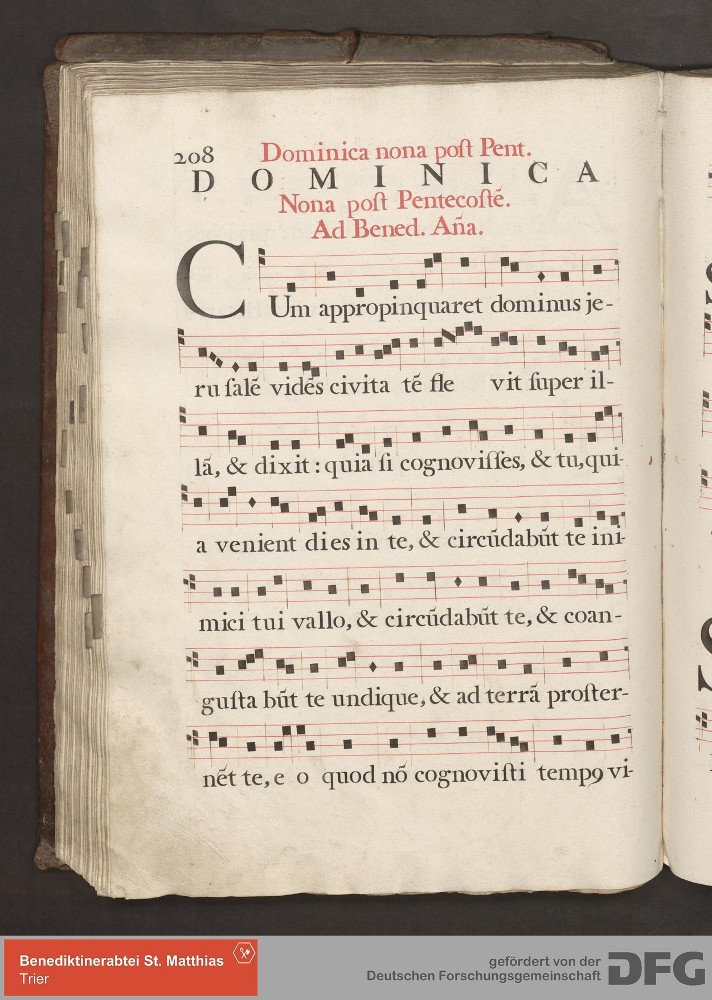 208 Dominica nona poſt Pent.
DOMINICA
Nona poſt Pentecoſtẽ.
Ad Bened. Aña.
CUm appropinquaret dominus je-
ruſalẽ vidẽs civita tẽ fle vit ſuper il-
lã, & dixit: quia ſi cognoviſſes, & tu, qui-
a venient dies in te, & circũdabũt te ini-
mici tui vallo, & circũdabũt te, & coan-
guſta bũt te undique, & ad terrã proſter-
nẽt te, e o quod nõ cognoviſti tempꝰ vi-
Benediktinerabtei St. Matthias
Trier
gefördert von der
Deutschen Forschungsgemeinschaft
DFG